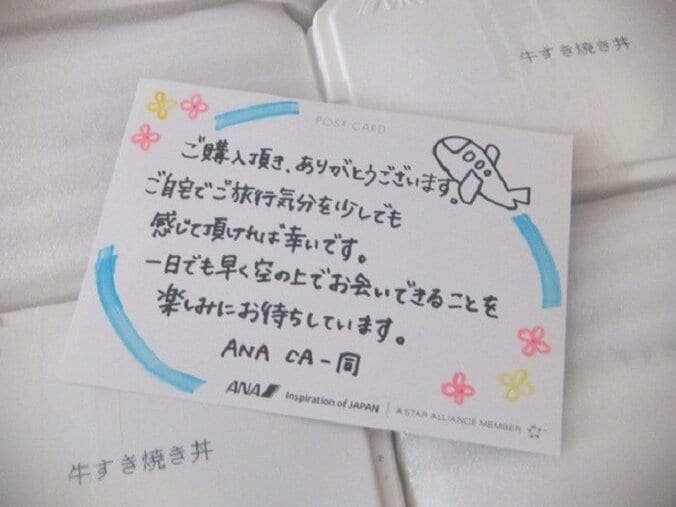 牛すき焼き丼
POST CARD
ご購入頂き、ありがとうございます。
ご自宅でご旅行気分を少しでも
感じて頂ければ幸いです。
一日でも早く空の上でお会いできることを
楽しみにお待ちしています。
ANA CA一同
ANA Inspiration of JAPAN | A STAR ALLIANCE MEMBER
牛すき焼き丼